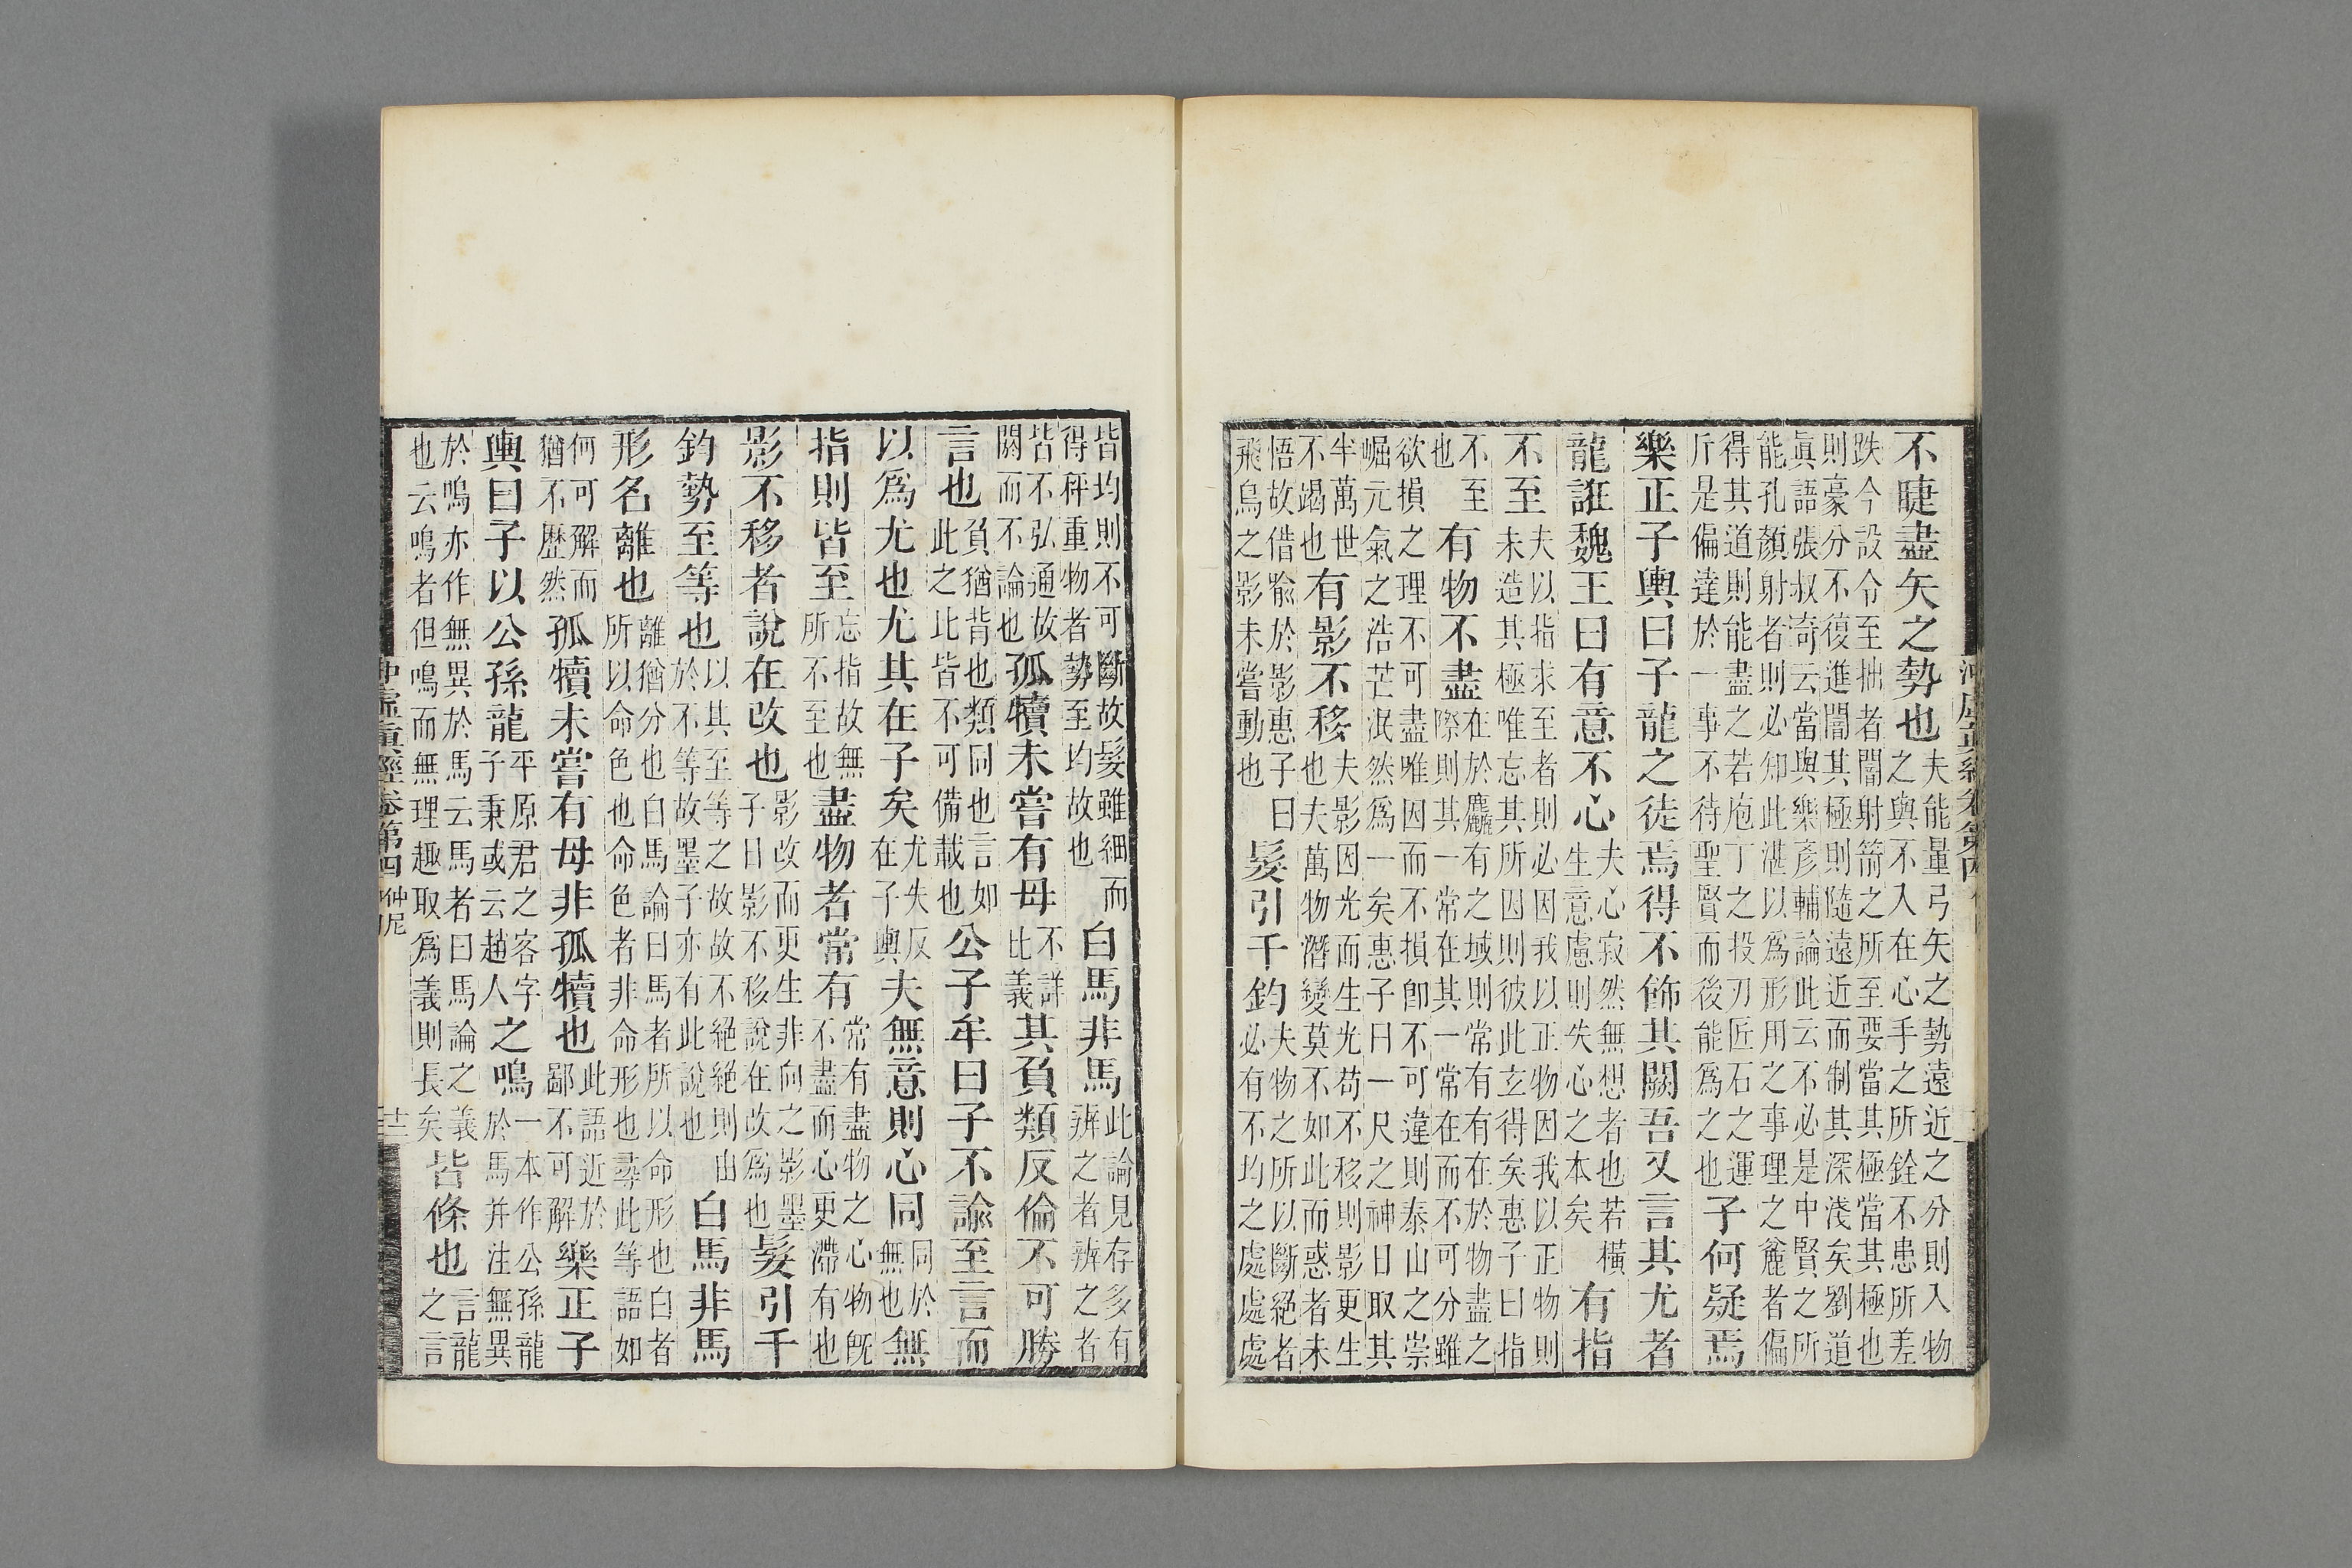 不睫盡矢之勢也夫能量弓矢之勢遠近之分則入物之與不入在心手之所銓不患所差
跌今設令至拙者闇射箭之所至要當其極當其極也則豪分不復進闇其極則隨遠近而制其深淺矣劉道
眞語張叔奇云當與樂彥輔論此云不必是中賢之所能孔顏射者則必知此湛以爲形用之事理之麄者偏
得其道則能盡之若庖丁之投刃匠石之運斤是偏達於一事不待聖賢而後能爲之也子何疑焉
樂正子輿曰子龍之徒焉得不飾其闕吾又言其尤者
龍誑魏王曰有意不心夫心寂然無想者也若橫生意慮則失心之本矣有指
不至夫以指求至者則必因我以正物因我以正物則未造其極唯忘其所因則彼此玄得矣惠子曰指
不至也有物不盡在於麤有之域則常有有在於物盡之際則其一常在其一常在而不可分雖
欲損之理不可盡唯因而不損卽不可違則泰山之崇崛元氣之浩芒泯然爲一矣惠子曰一尺之神日取其
半萬世不竭也有影不移夫影因光而生光苟不移則影更生也夫萬物潛變莫不如此而惑者未
悟故借喩於影惠子曰飛鳥之影未嘗動也髮引千鈞夫物之所以斷絕者必有不均之處處處
皆均則不可斷故髮雖細而得秤重物者勢至均故也白馬非馬此論見存多有辨之者辨之者
皆不弘通故闕而不論也孤犢未嘗有母不詳比義其負類反倫不可勝
言也負猶背也類同也言如此之比皆不可備載也公子牟曰子不諭至言而
以爲尤也尤其在子矣尤失反在子輿夫無意則心同同於無也無
指則皆至忘指故無所不至也盡物者常有常有盡物之心物旣不盡而心更滯有也
影不移者說在改也影改而更生非向之影墨子曰影不移說在改爲也髮引千
鈞勢至等也以其至等之故故不絕絕則由於不等故墨子亦有此說也白馬非馬
形名離也離猶分也白馬論曰馬者所以命形也白者所以命色也命色者非命形也尋此等語如
何可解而猶不歷然孤犢未嘗有母非孤犢也此語近於鄙不可解樂正子
輿曰子以公孫龍平原君之客字子秉或云趙人之鳴一本作公孫龍於馬幷注無異
於鳴亦作無異於馬云馬者曰馬論之義也云鳴者但鳴而無理趣取爲義則長矣皆條也言龍之言
冲虛眞經卷第四 仲尼 十二